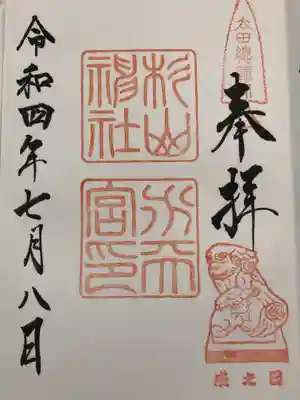 太田總鎮守
奉拝
戌之日
杉山
神社
水天
宮印
令和四年七月八日